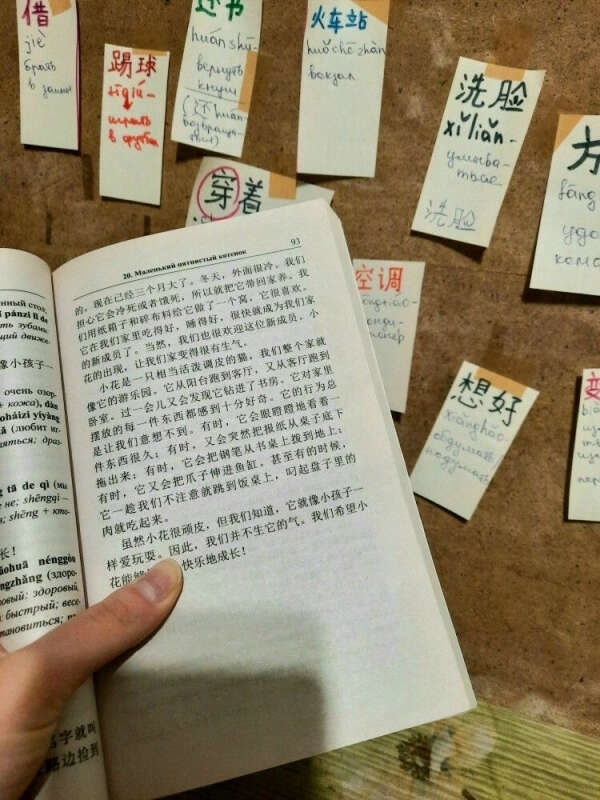 借
jiè
брать
в займы
踢球
tīqiú
играть
в футбол
还书
huánshū
вернуть
книги
(还 huán
возвраща-
火车站
huǒchēzhàn
вокзал
洗脸
xǐliǎn
умыва-
ться
洗脸
方
fāng
удо
穿着
空调
想好
xiǎnghǎo
обдумать/
подумать
20. Маленький пятнистый котенок
93
的。现在已经三个月大了。冬天,外面很冷。我们
担心它会冷死或者饿死,所以就把它带回家养。我
们用纸箱子和碎布料给它做了一个窝,它很喜欢。
它在我们家里吃得好,睡得好,很快就成为我们家
的新成员了。当然,我们也很欢迎这位新成员,小
花的出现,让我们家变得很有生气。
小花是一只相当活泼调皮的猫,我们整个家就
像它的游乐园。它从阳台跑到客厅,又从客厅跑到
卧室。过一会儿又会发现它钻进了书房。它对家里
摆放的每一件东西都感到十分好奇。它的行为总
是让我们意想不到。有时,它会眼瞪瞪地看着一
件东西很久;有时,又会突然把报纸从桌子底下
拖出来;有时,它会把钢笔从书桌上拨到地上;
有时,它又会把爪子伸进鱼缸。甚至有的时候,
它一趁我们不注意就跳到饭桌上,叼起盘子里的
肉就吃起来。
虽然小花很顽皮,但我们知道,它就像小孩子一
样爱玩耍。因此,我们并不生它的气。我们希望小
花能 快乐地成长!
нный стол,
pánzi lǐ de
ть зубами:
ющий движе-
像小孩子一
очень озор-
+ кожа), dàn
oháizi yíyàng
(любит иг-
tā de qì (мы
не; shēngqì –
; shēng + кто-
长!
ǎohuā nénggòu
ngzhǎng (здоро-
ровый: здоровый,
быстрый; весе-
名字就叫
路边捡到